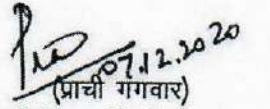 07.12.2020
(प्राची गंगवार)